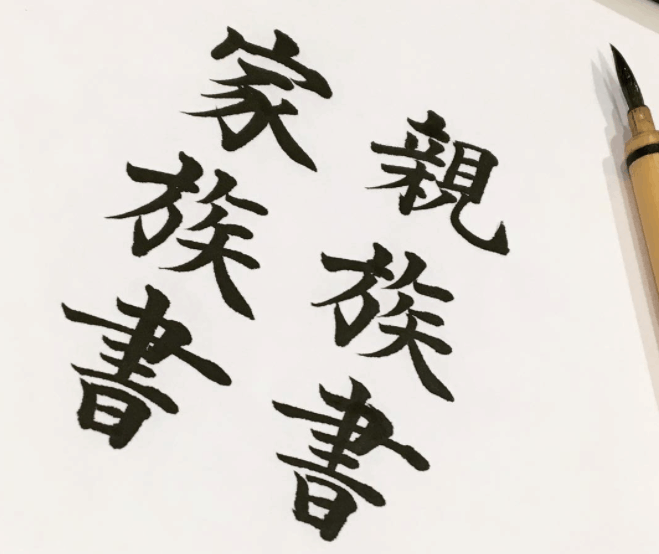 親族書
家族書